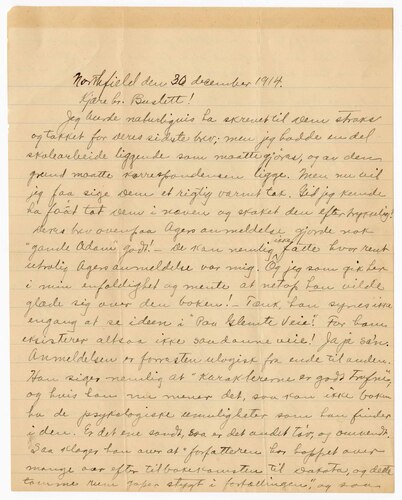 Northfield den 30 december 1914.
Kjære hr. Buslett!
Jeg burde naturligvis ha skrevet til Dem straks
og takket for deres sidste brev; men jeg hadde en del
skolearbeide liggende som maatte gjøres, og av den
grund maatte korrespondensen ligge. Men nu vil
jeg faa sige Dem et rigtig varmt tak. Gid jeg kunde
ha faat tat Dem i næven og rysket den
Deres brev ovenpaa Agers anmeldelse gjorde nok
"gamle Adam" godt! — De kan nemlig ikke fatte hvor rent
utrolig Agers anmeldelse var mig. Og jeg som gik her
i min enfoldighet og mente at netop han vilde
glæde sig over den boken! — Tænk han synes ikke
engang at se ideen i "Paa Glemte Veie". For ham
eksisterer altsaa ikke saadanne veie! Ja ja san.
Anmeldelsen er forresten ulogisk fra ende til anden.
Han siger nemlig at "karakterene er godt truffne",
og hvis han nu mener det, saa kan ikke boken
ha de psykologiske umuligheter som han finder
i den. Er det ene sandt, saa er det andet tøv, og omvendt.
Saa klager han over at "forfatteren har hoppet over
mange aar efter tilbakekomsten til Dakota, og dette
tomrum gaper stygt i fortællingen", og saa